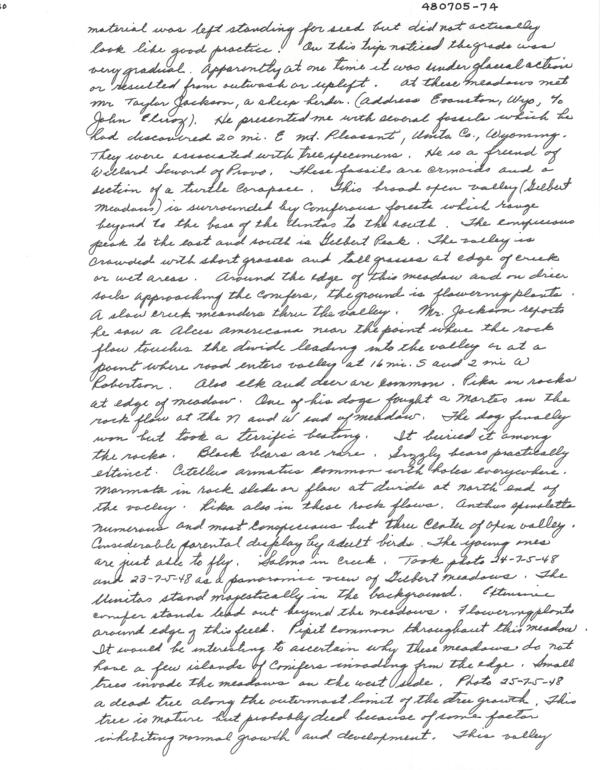 480705-74
material was left standing for seed but did not actually
look like good practice. On this trip noticed the grade was
very gradual. Apparently at one time it was under glacial action
or resulted from outwash or uplift. At these meadows met
Mr Taylor Jackson, a sheep herder. (Address Evanston, Wyo, %
John Elroy). He presented me with several fossils which he
had discovered 20 mi. E Mt. Pleasant, Uinta Co., Wyoming.
They were associated with tree specimens. He is a friend of
Willard Seword of Provo. These fossils are crinoids and a
section of a turtle carapace. This broad open valley (Gilbert
Meadows) is surrounded by Coniferous forests which range
beyond to the base of the Uintas to the south. The conspicuous
peak to the east and south is Gilbert Peak. The valley is
crowded with short grasses and tall grasses at edge of creek
or wet areas. Around the edge of this meadow and on drier
soils approaching the conifers, the ground is flowering plants.
A slow creek meanders thru the valley. Mr. Jackson reports
he saw a Alces americana near the point where the rock
flow touches the divide leading into the valley or at a
point where road enters valley at 16 mi. S and 2 mi W
Robertson. Also elk and deer are common. Pika in rocks
at edge of meadow. One of his dogs fought a Martes in the
rock flow at the N and W end of meadow. The dog finally
won but took a terrific beating. It buried it among
the rocks. Black bears are rare. Grizzly bears practically
extinct. Citellus armatus common with holes everywhere.
Marmota in rock slide or flow at divide at north end of
the valley. Pika also in these rock flows. Anthus spinoletta
numerous and most conspicious but thru center of open valley.
Considerable parental display by adult birds. The young ones
are just able to fly. Salmo in creek. Took photo 24-7-5-48
and 23-7-5-48 as a panoramic view of Gilbert meadows. The
Uintas stand majestically in the background. Extensive
conifer stands lead out beyond the meadows. Flowering plants
around edge of this feed. Pipit common throughout this meadow.
It would be interesting to ascertain why these meadows do not
have a few islands of Conifers invading from the edge. Small
trees invade the meadows on the west side. Photo 25-7-5-48
a dead tree along the outermost limit of the tree growth. This
tree is mature but probably died because of some factor
inhibiting normal growth and development. This valley